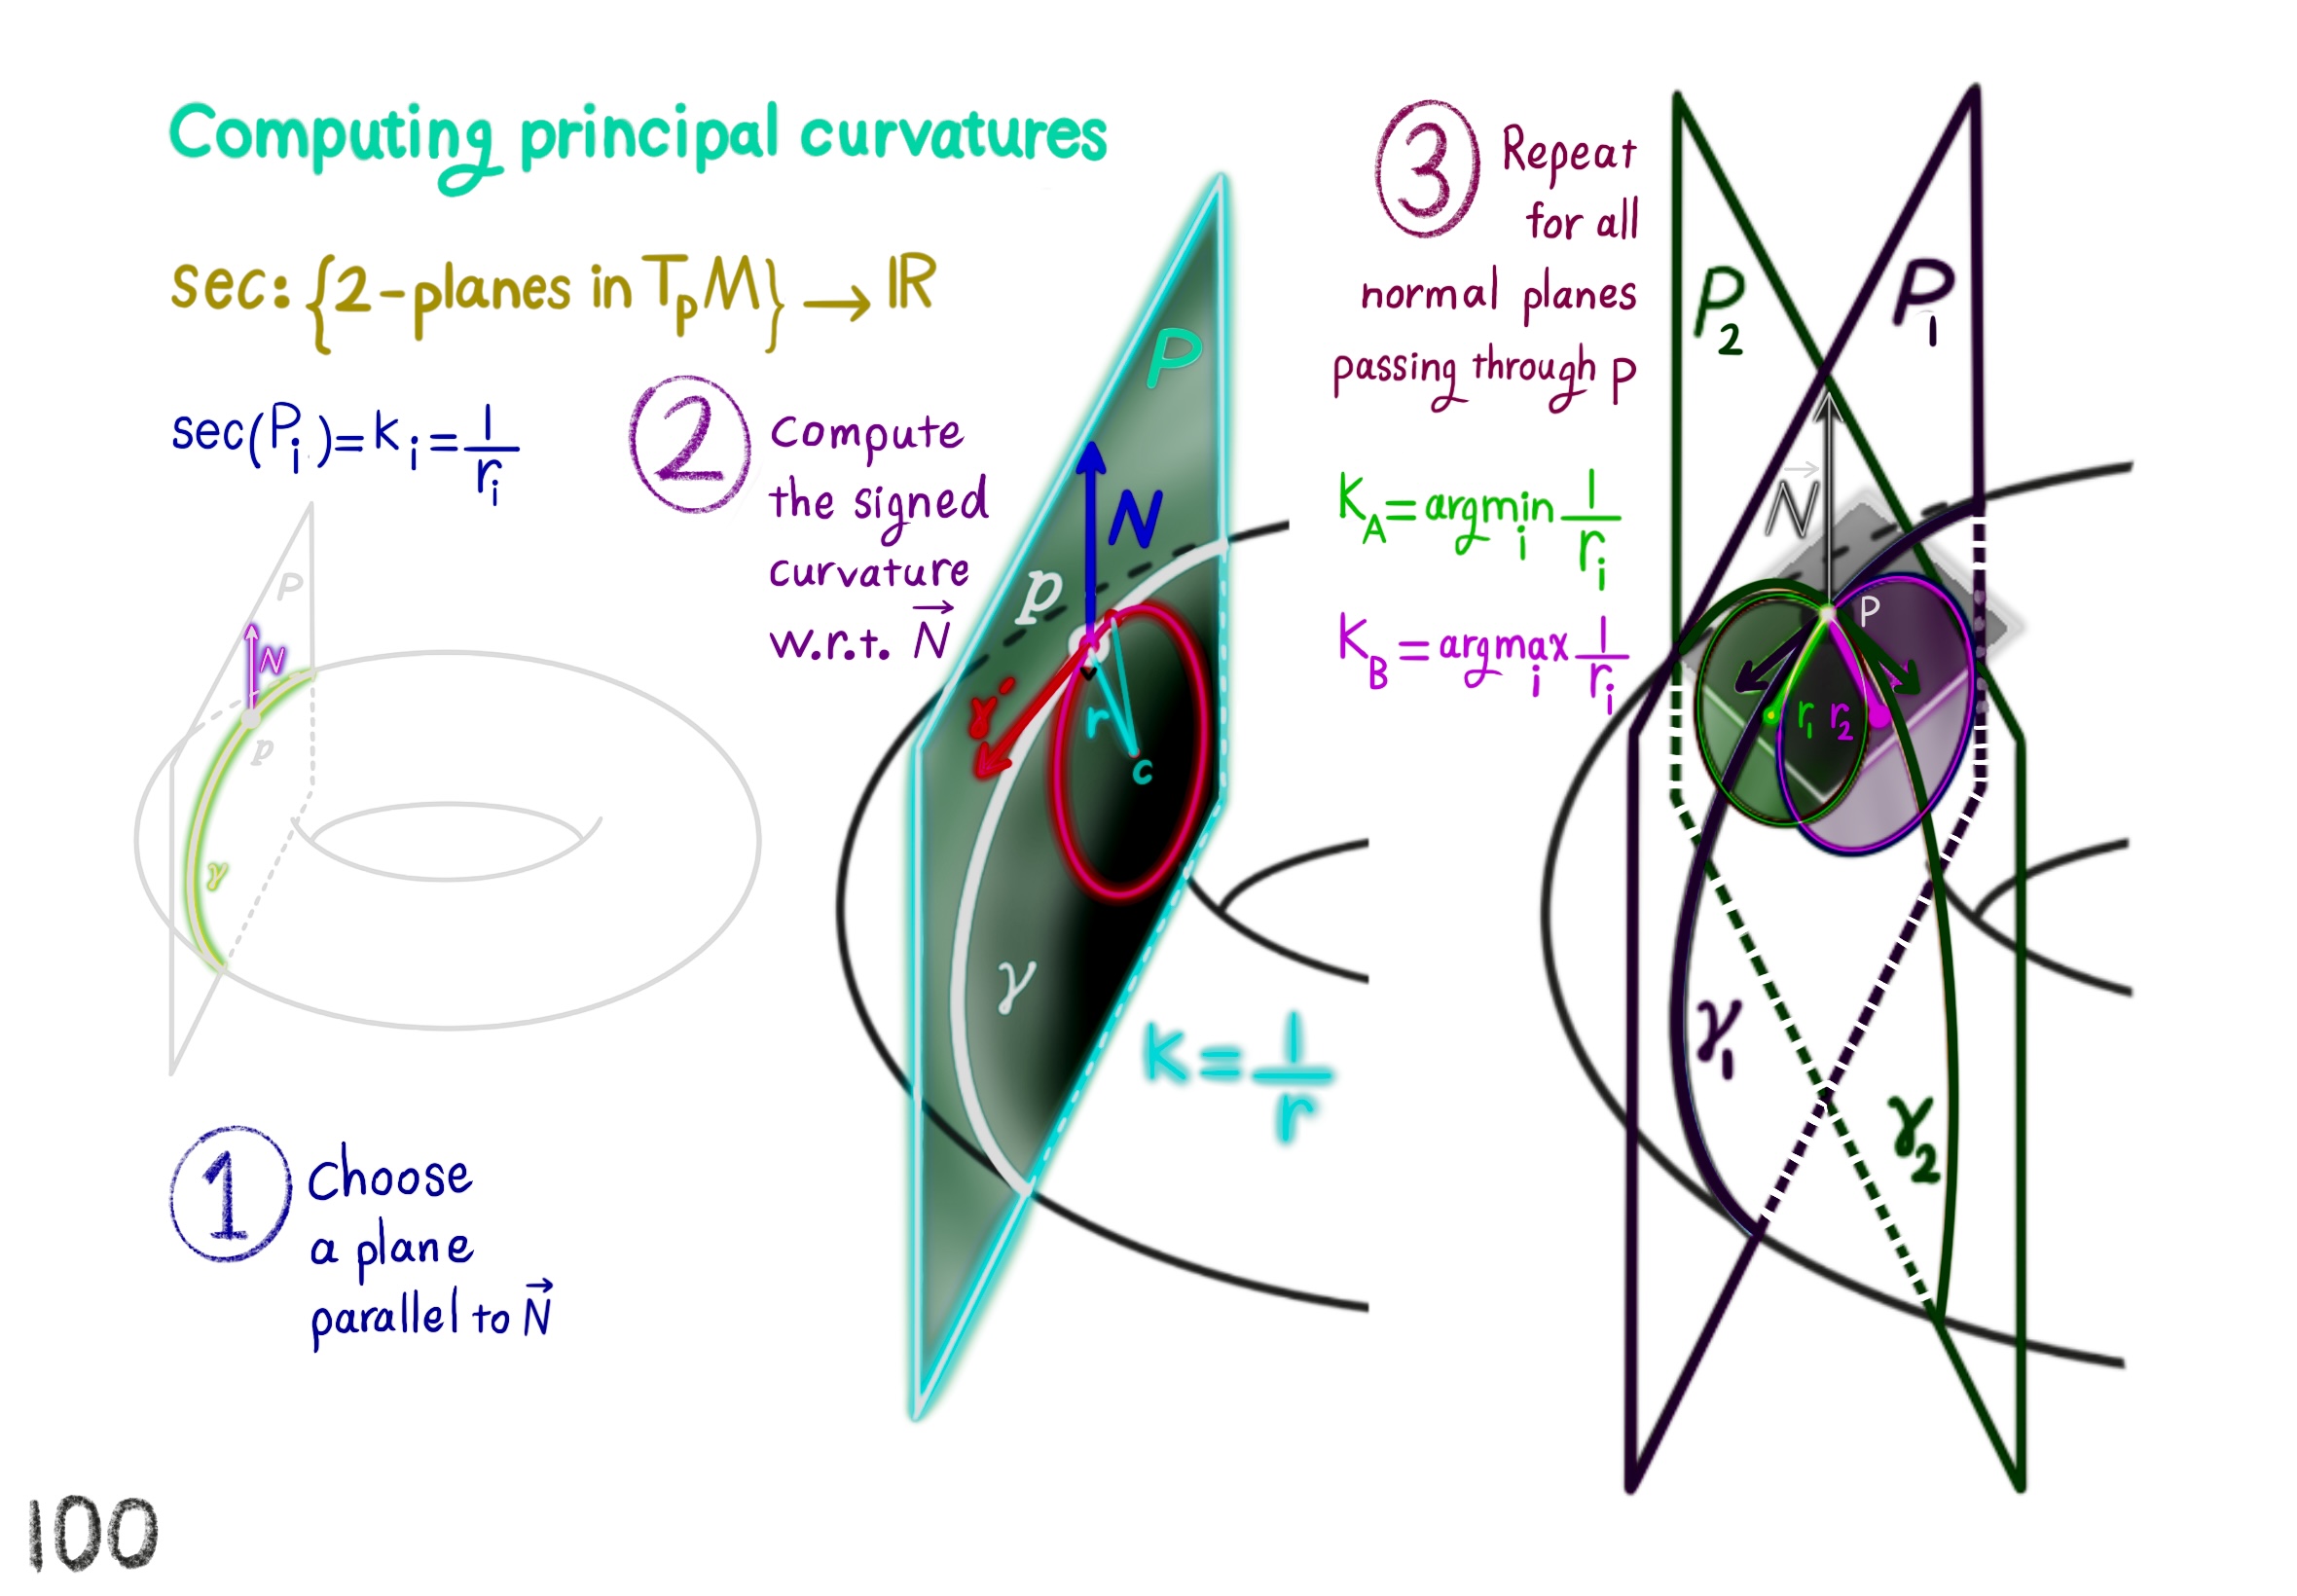 Computing principal curvatures
sec: {2-planes in TₚM} → ℝ
sec(Pᵢ) = kᵢ = 1/rᵢ
P
N
p
γ
1 Choose
a plane
parallel to N⃗
2 Compute
the signed
curvature
w.r.t. N⃗
P
N
p
γ̇
r
c
γ
K = 1/r
3 Repeat
for all
normal planes
passing through p
K_A = argmin_i 1/rᵢ
K_B = argmax_i 1/rᵢ
P₂
P₁
N⃗
p
r₁ r₂
γ₁
γ₂
100